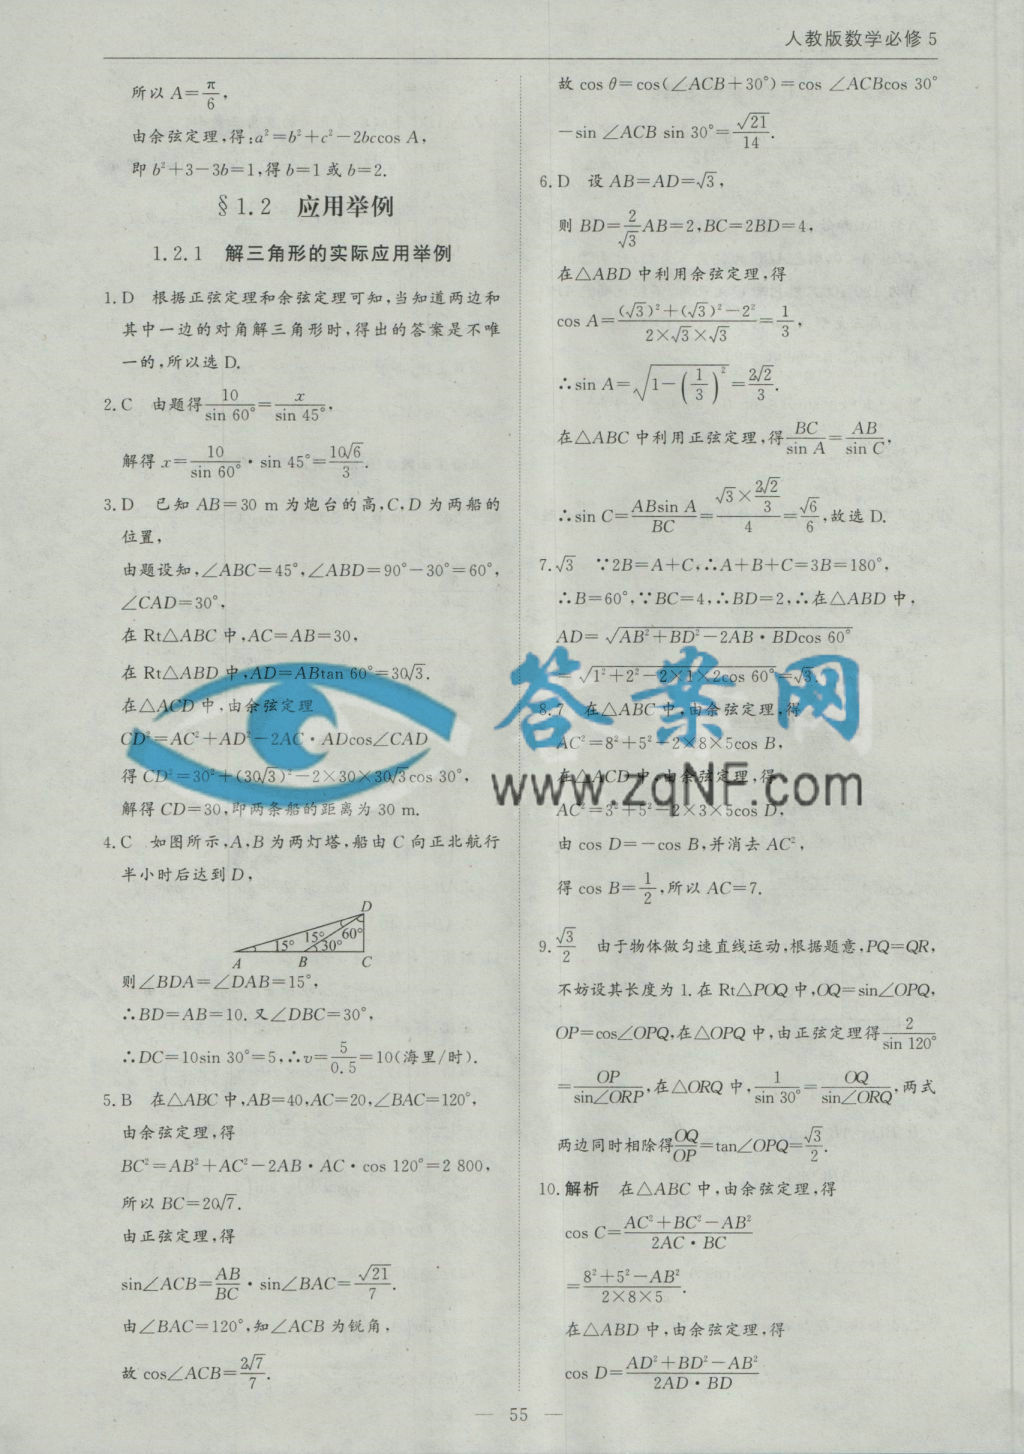 人教版数学必修 5
所以 A=π/6,
由余弦定理,得:a²=b²+c²-2bccos A,
即 b²+3-3b=1,得 b=1 或 b=2.
§1.2 应用举例
1.2.1 解三角形的实际应用举例
1.D 根据正弦定理和余弦定理可知,当知道两边和
其中一边的对角解三角形时,得出的答案是不唯
一的,所以选 D.
2.C 由题得10/sin 60°=x/sin 45°,
解得 x=10/sin 60°·sin 45°=10√6/3.
3.D 已知 AB=30 m 为炮台的高,C,D 为两船的
位置,
由题设知,∠ABC=45°,∠ABD=90°-30°=60°,
∠CAD=30°,
在 Rt△ABC 中,AC=AB=30,
在 Rt△ABD 中,AD=ABtan 60°=30√3.
在△ACD 中,由余弦定理
CD²=AC²+AD²-2AC·ADcos∠CAD
得 CD²=30²+(30√3)²-2×30×30√3cos 30°,
解得 CD=30,即两条船的距离为 30 m.
4.C 如图所示,A,B 为两灯塔,船由 C 向正北航行
半小时后达到 D,
D
15° 15° 30° 60°
A B C
则∠BDA=∠DAB=15°,
∴BD=AB=10.又∠DBC=30°,
∴DC=10sin 30°=5,∴v=5/0.5=10(海里/时).
5.B 在△ABC 中,AB=40,AC=20,∠BAC=120°,
由余弦定理,得
BC²=AB²+AC²-2AB·AC·cos 120°=2 800,
所以 BC=20√7.
由正弦定理,得
sin∠ACB=AB/BC·sin∠BAC=√21/7.
由∠BAC=120°,知∠ACB 为锐角,
故 cos∠ACB=2√7/7.
故 cos θ=cos(∠ACB+30°)=cos ∠ACBcos 30°
-sin ∠ACB sin 30°=√21/14.
6.D 设 AB=AD=√3,
则 BD=2/√3AB=2,BC=2BD=4,
在△ABD 中利用余弦定理,得
cos A=((√3)²+(√3)²-2²)/(2×√3×√3)=1/3,
∴sin A=√(1-(1/3)²)=2√2/3.
在△ABC 中利用正弦定理,得BC/sin A=AB/sin C,
∴sin C=ABsin A/BC=(√3×2√2/3)/4=√6/6,故选 D.
7.√3 ∵2B=A+C,∴A+B+C=3B=180°,
∴B=60°,∵BC=4,∴BD=2,∴在△ABD 中,
AD=√(AB²+BD²-2AB·BDcos 60°)
=√(1²+2²-2×1×2cos 60°)=√3.
8.7 在△ABC 中,由余弦定理,得
AC²=8²+5²-2×8×5cos B,
在△ACD 中,由余弦定理,得
AC²=3²+5²-2×3×5cos D,
由 cos D=-cos B,并消去 AC²,
得 cos B=1/2,所以 AC=7.
9.√3/2 由于物体做匀速直线运动,根据题意,PQ=QR,
不妨设其长度为 1.在 Rt△POQ 中,OQ=sin∠OPQ,
OP=cos∠OPQ,在△OPQ 中,由正弦定理得2/sin 120°
=OP/sin∠ORP,在△ORQ 中,1/sin 30°=OQ/sin∠ORQ,两式
两边同时相除得OQ/OP=tan∠OPQ=√3/2.
10.解析 在△ABC 中,由余弦定理,得
cos C=(AC²+BC²-AB²)/(2AC·BC)
=(8²+5²-AB²)/(2×8×5).
在△ABD 中,由余弦定理,得
cos D=(AD²+BD²-AB²)/(2AD·BD)
— 55 —
答案网
www.zqNF.com